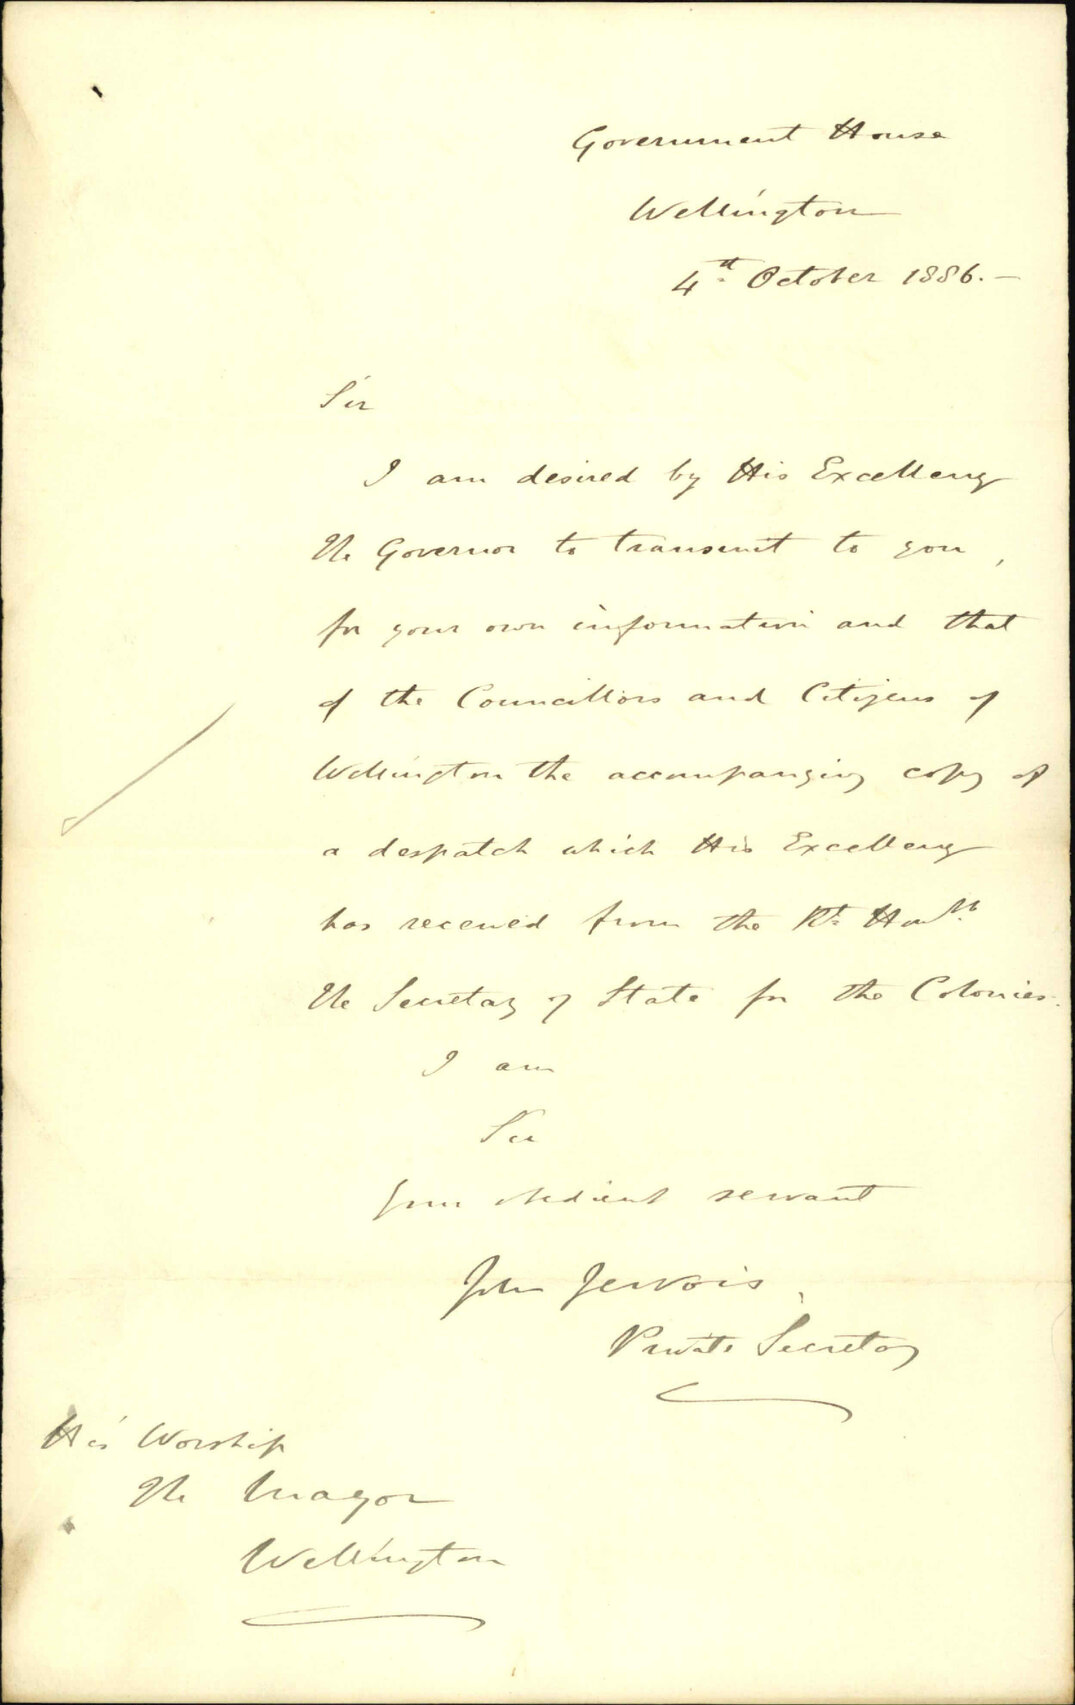 Government House
Wellington
4th October 1886. —
Sir
I am desired by His Excellency
the Governor to transmit to you,
for your own information and that
of the Councillors and Citizens of
Wellington the accompanying copy of
a despatch which His Excellency
has received from the Rt. Honble.
the Secretary of State for the Colonies.
I am
Sir
Your obedient servant
John Jervois.
Private Secretary
His Worship
The Mayor
Wellington